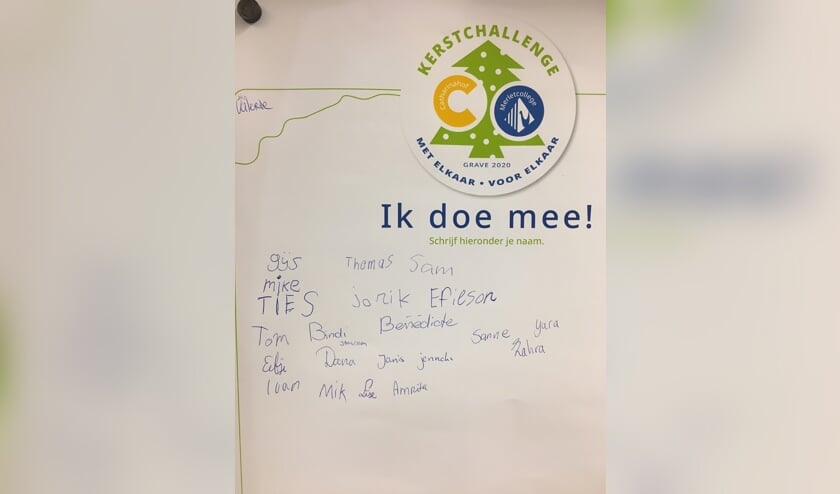 KERSTCHALLENGE
Catharinahof
Merletcollege
GRAVE 2020
MET ELKAAR • VOOR ELKAAR
Ik doe mee!
Schrijf hieronder je naam.
gijs Thomas Sam
mike
TIES jorik Efieson
Tom Bindi Benedicte Sanne Yara
Zahra
Dana Janis
Ivan Mik Lise Amrita